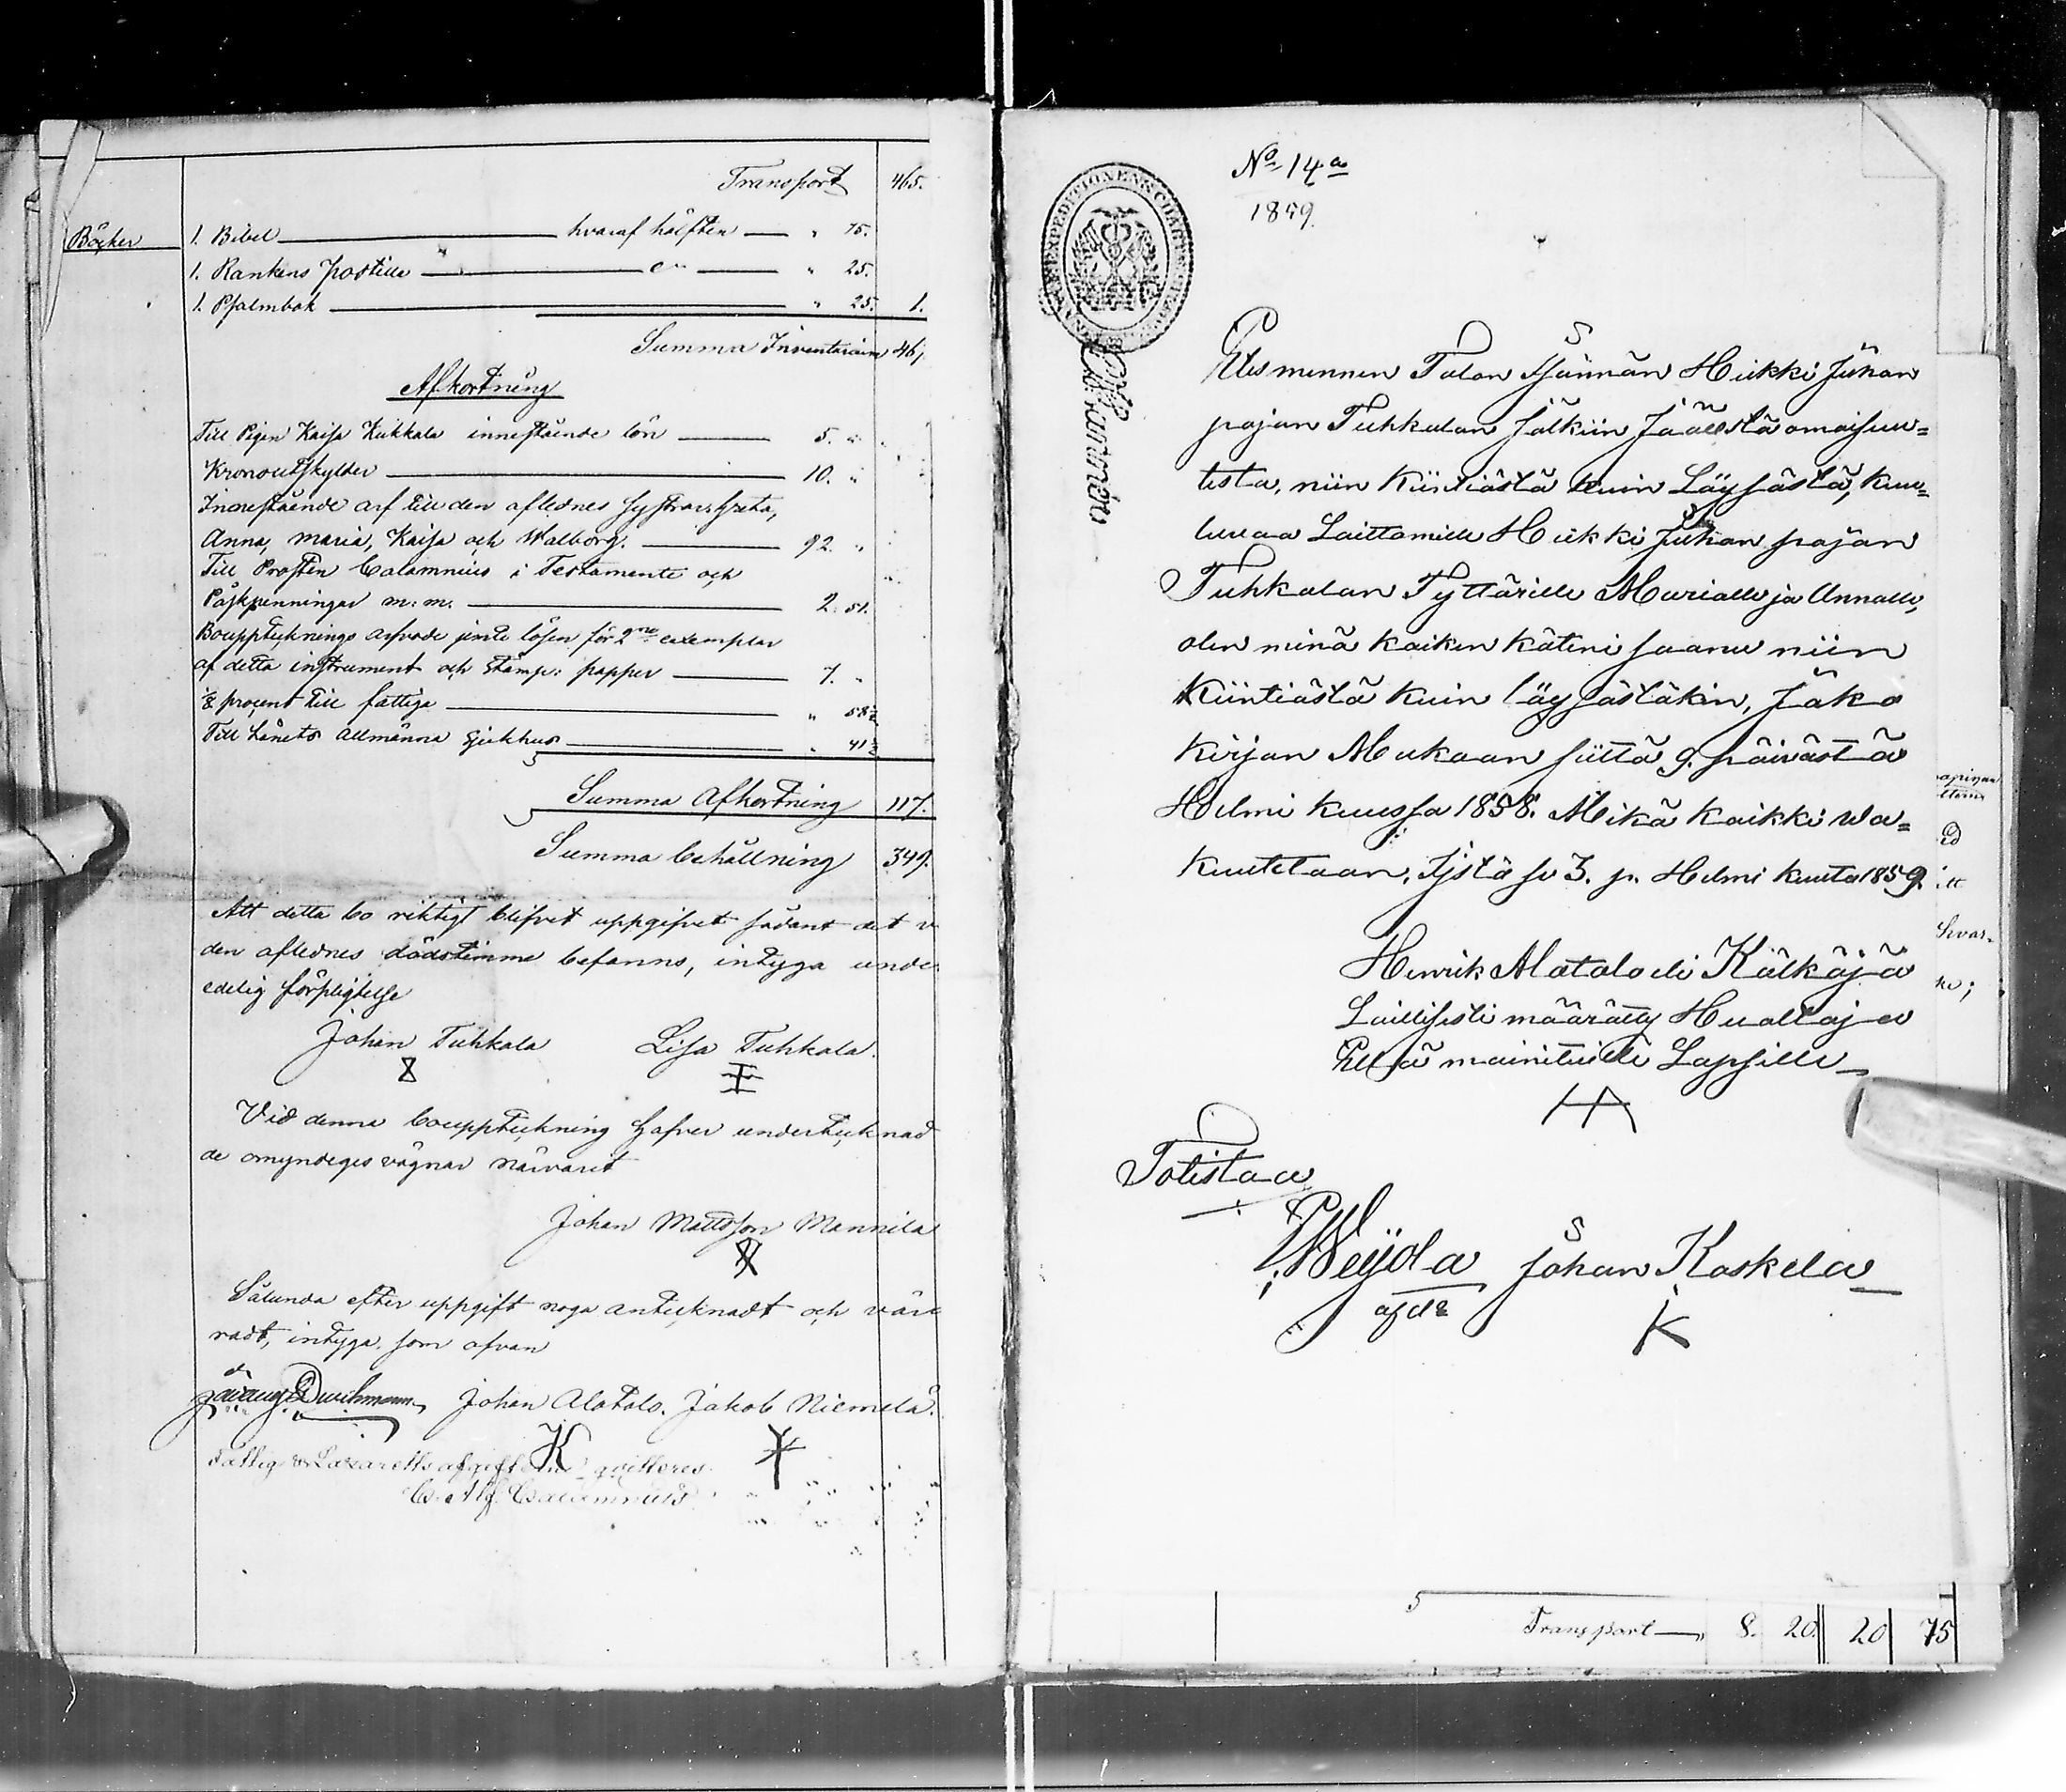 Transport 465.
Böcker 1. Bibel hvaraf hälften " 75.
1. Rankens postilla " 25.
1. Psalmbok " 25. 1.
Summa Inventarium 46
Afkortning
Till Pigan Kaisa Kukkala innestående lön 5. "
Kronoutskylder 10. "
Innestående arf till den aflednes systrar Greta,
Anna, Maria, Kaisa och Walborg. 92. "
Till Prosten Calamnius i Testamente och
Påskpenningar m: m. 2. 51.
Boupptecknings arfvode jemte lösen för 2ne exemplar
af detta instrument och stämp: papper 7. "
1/8 procent till fattiga " 58½
Till Länets Allmänna Sjukhus " 41½
Summa Afkortning 117.
Summa behållning 349.
Att detta bo riktigt blifvit uppgifvet sådant det v
den aflednes dödstimme befanns, intyga unde
edelig förpligtelse
Johan Tuhkala Lisa Tuhkala.
Vid denna bouppteckning hafver undertecknad
de omyndiges vägnar närvarit
Johan Mattsson Mannila
Sålunda efter uppgift noga antecknadt och vär
radt, intyga som ofvan
Johan Alatalo. Jakob Niemelä.
K
Fattig & Lazaretts afgifterne qvitteras
Calamnius
No 14a
1859
Edes mennen Talon Isännän Heikki Juhan
pojan Tuhkalan jälkiin Jääestä omaisuu=
testa, niin Kiintiästä kuin Läysästä, kuu=
luvaa Laittomille Heikki Juhan pojan
Tuhkalan Tyttärille Marialle ja Annalle,
olen minä kaiken käteni saanu niin
Kiintiästä kuin läysästäkin, Jako
kirjan Mukaan siittä 9. päivästä
Helmi kuussa 1858. Mikä kaikki Wa=
kuutetaan, Ijstä se 3. p. Helmi kuuta 1859.
Henrik Alatalo eli Kälkäjä
Laillisesti määrätty Huoltaja
Ellä mainituille Lapsille
Totistaa
Weijola Johan Koskela
K
Transport 8. 20. 20 75